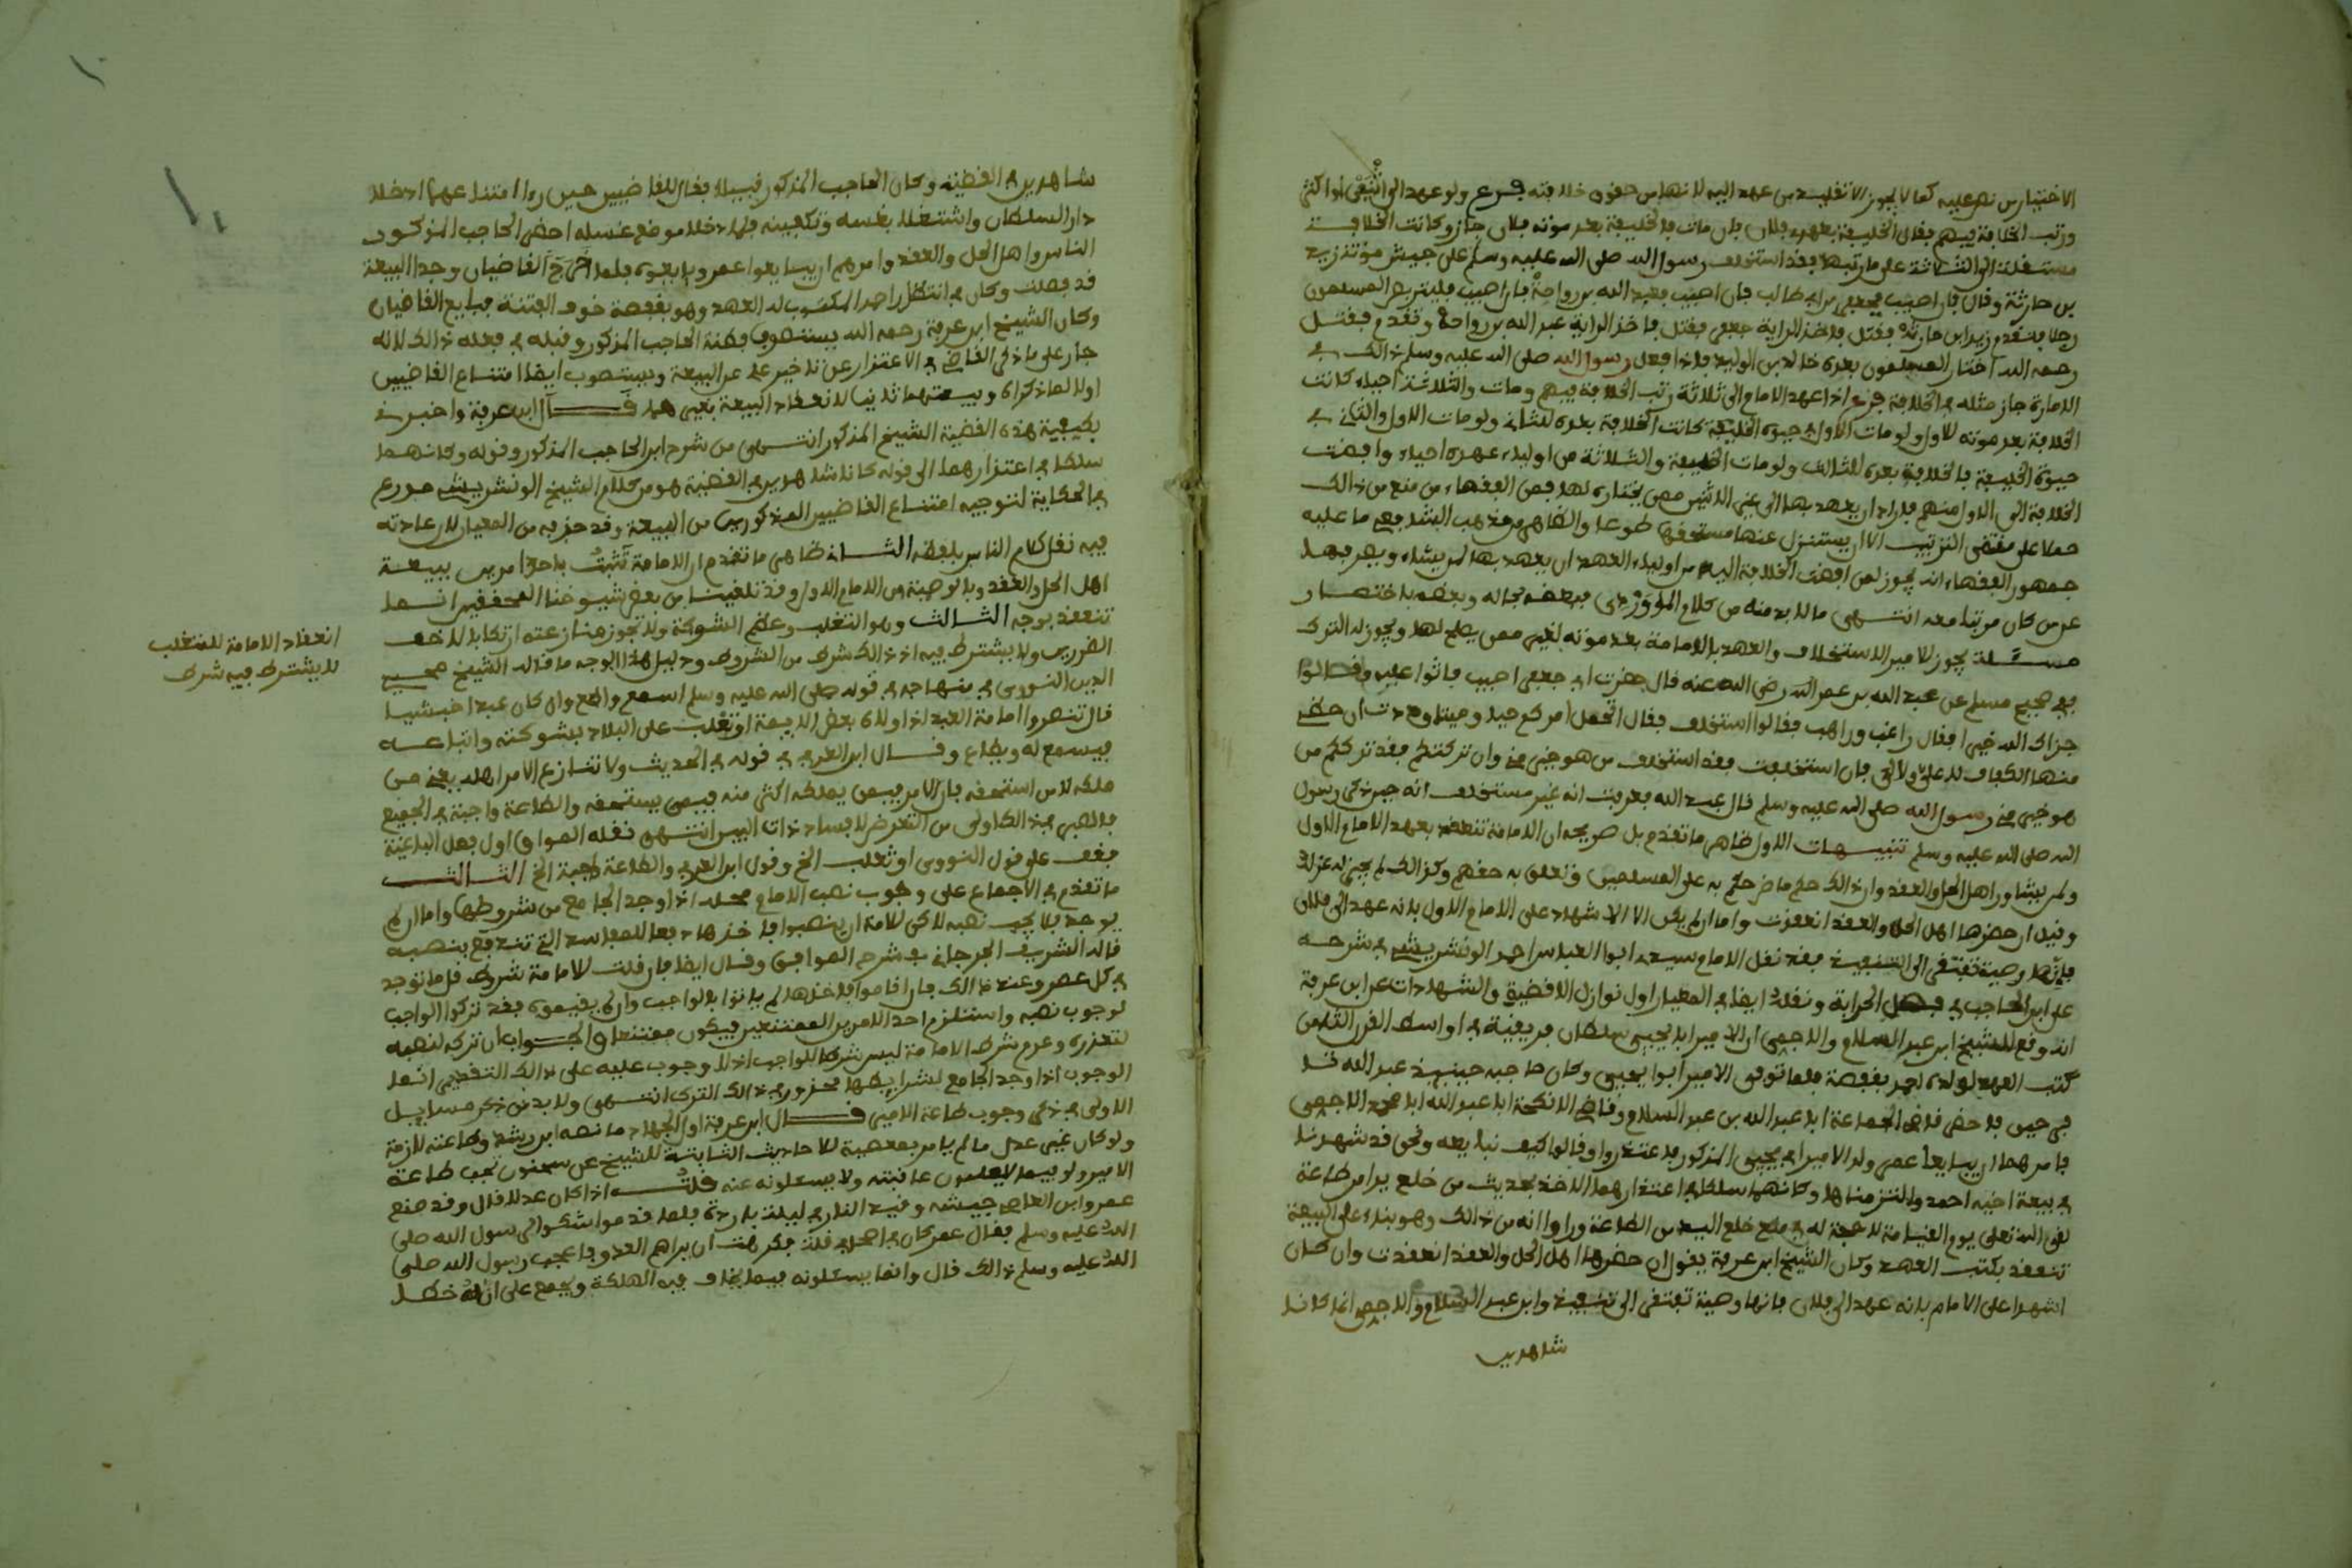 الاختيار من نص عليه كما لا يجوز الا تقليد من عهد اليه لانها من حقوق خلافته فرع ولو عهد الى اثنين او اكثر
ورتب الخلافة فيهم فقال الخليفة بعدي فلان فان مات فالخليفة بعد موته فلان جاز وكانت الخلافة
منتقلة الى الثلاثة على ما رتبها فقد استخلف رسول الله صلى الله عليه وسلم على جيش موتة زيد
بن حارثة وقال فان اصيب فجعفر بن ابي طالب فان اصيب فعبد الله بن رواحة فان اصيب فليرتض المسلمون
رجلا فتقدم زيد ابن حارثة فقتل فاخذ الراية جعفر فقتل فاخذ الراية عبد الله بن رواحة وتقدم فقتل
رحمه الله اختار المسلمون بعده خالد بن الوليد فاذا فعل رسول الله صلى الله عليه وسلم ذالك في
الامارة جاز مثله في الخلافة فرع اذا عهد الامام الى ثلاثة رتب الخلافة فيهم ومات والثلاثة احياء كانت
الخلافة بعد موته للاول ولو مات الاول في حيوة الخليفة كانت الخلافة بعده للثاني ولو مات الاول والثاني في
حيوة الخليفة فالخلافة بعده للثالث ولو مات الخليفة والثلاثة من اولياء عهده احياء وافضت
الخلافة الى الاول منهم فاراد ان يعهد بها الى غير الاثنين ممن يختاره لها فمن الفقهاء من منع من ذالك
حملا على مقتضى الترتيب الا ان يستنزل عنها مستحقها طوعا والظاهر من مذهب الشافعي ما عليه
جمهور الفقهاء انه يجوز لمن افضت الخلافة اليه من اولياء العهد ان يعهد بها لمن يشاء ويصرفها
عن من كان مرتبا معه انتهى ما لا بد منه من كلام الماوردي فبعضه بحاله وبعضه باختصار
مسئلة يجوز للامير الاستخلاف والعهد بالامامة بعد موته لغير ممن يصلح لها ويجوز له الترك
ففي صحيح مسلم عن عبد الله بن عمر رضي الله عنه قال حضرت ابي حين اصيب فاثنوا عليه وقالوا
جزاك الله خيرا فقال راغب وراهب فقالوا استخلف فقال اتحمل امركم حيا وميتا وددت ان حظي
منها الكفاف لا علي ولا لي فان استخلفت فقد استخلف من هو خير مني وان تركتكم فقد ترككم من
هو خير مني رسول الله صلى الله عليه وسلم قال عبد الله فعرفت انه غير مستخلف انه حين ذكر رسول
الله صلى الله عليه وسلم تنبيهات الاول ظاهر ما تقدم بل صريحه ان الامامة تنعقد بعهد الامام الاول
ولم يشاور اهل الحل والعقد وان ذالك حكم ما ض حكم به على المسلمين وتعلق به حقهم وكذالك لم يجز له عزله
وقيل ان حضرها اهل الحل والعقد انعقدت واما ان لم يكن الا الاشهاد على الامام الاول بانه عهد الى فلان
فانها وصية تفتقر الى التنفيذ فقد نقل الامام سيدي ابوا العباس احمد الونشريشي في شرحه
على ابن الحاجب في فصل الحرابة ونقله ايضا في المعيار اول نوازل الاقضية والشهادات عن ابن عرفة
انه وقع للشيخ ابن عبد السلام والاجمي ان الامير ابا يحيى سلطان افريقية في اواسط القرن الثامن
كتب العهد لولده احمد بقفصة فلما توفي الامير ابوا يحيى وكان حاجبه حينئذ عبد الله قد
في حين فاحضر قاضي الجماعة ابا عبد الله بن عبد السلام وقاضي الانكحة ابا عبد الله ابا محمد الاجمي
فامرهما ان يبايعا عمر ولد الامير ابي يحيى المذكور فاعتذروا وقالوا كيف نبايعه ونحن قد شهدنا
في بيعة اخيه احمد والتزمناها وكانهما سلكا في اعتذارهما الاخذ بحديث من خلع يدا من طاعة
لقي الله تعلى يوم القيامة لا حجة له في منع خلع اليد من الطاعة وراوا انه من ذالك وهو بناء على البيعة
تنعقد بكتب العهد وكان الشيخ ابن عرفة يقول ان حضرها اهل الحل والعقد انعقدت وان كان
اشهدا على الامام بانه عهد الى فلان فانها وصية تفتقر الى تنفيذ وابن عبد السلام والاجمي انما كانا
شاهدين
شاهدين في القضية وكان الحاجب المذكور نبيلا فقال للقاضيين حين راى امتناعهما ادخلا
دار السلطان واشتغلا بغسله وتكفينه فلما دخلا موضع غسله احضر الحاجب المذكور
الناس واهل الحل والعقد وامرهم ان يبايعوا عمر وبايعوه فلما خرج القاضيان وجدا البيعة
قد فصلت وكان في انتظار احمد المكتوب له العهد وهو بقفصة خوف الفتنة فبايع القاضيان
وكان الشيخ ابن عرفة رحمه الله يستصوب فطنة الحاجب المذكور ونبله في فعله ذالك لانه
جار على ما ذكر القاضي في الاعتذار عن تاخير علي عن البيعة ويستصوب ايضا امتناع القاضيين
اولا لما ذكراه وبيعتهما ثانيا لانعقاد البيعة بغيرهما قال ابن عرفة واخبرني
بكيفية هذه القضية الشيخ المذكور انتهى من شرح ابن الحاجب المذكور وقوله وكانهما
سلكا في اعتذارهما الى قوله كانا شاهدين في القضية هو من كلام الشيخ الونشريشي مدرج
في الحكاية لتوجيه امتناع القاضيين المذكورين من البيعة وقد حذفه من المعيار لان عادته
فيه نقل كلام الناس بلفظه الثاني ظاهر ما تقدم ان الامامة تثبت باحد امرين ببيعة
اهل الحل والعقد وبالوصية من الامام الاول وقد تلقينا من بعض شيوخنا المحققين انها
تنعقد بوجه الثالث وهو التغلب وعظم الشوكة ولا تجوز منازعته ارتكابا لاخف
الضررين ولا يشترط فيه اذ ذالك شرط من الشروط ودليل هذا الوجه ما قاله الشيخ محيي
الدين النووي في منهاجه في قوله صلى الله عليه وسلم اسمع واطع وان كان عبدا حبشيا
قال تتصور امامة العبد اذا ولاه بعض الايمة او تغلب على البلاد بشوكته واتباعه
فيسمع له ويطاع وقال ابن العربي في قوله في الحديث ولا تنازع الامر اهله يعني من
ملكه لا من استحقه فان الامر فيمن يملكه اكثر منه فيمن يستحقه والطاعة واجبة في الجميع
فالصبر في ذالك اولى من التعرض لافساد ذات البين انتهى نقله المواق اول فصل الباغية
فقف على قول النووي او تغلب الخ وقول ابن العربي والطاعة واجبة الخ الثالث
ما تقدم في الاجماع على وجوب نصب الامام محله اذا وجد الجامع من شروطها واما ان لم
يوجد فلا يجب نصبه لاكن للامة ان ينصبوا فاقدها دفعا للمفاسد التي تندفع بنصبه
قاله الشريف الجرجاني في شرح المواقف وقال ايضا فان قلت للامامة شروط قل ما توجد
في كل عصر وعند ذالك فان اقاموا فاقدها لم ياتوا بالواجب وان لم يقيموه فقد تركوا الواجب
لوجوب نصبه واستلزم احد الامرين الممتنعين فيكون ممتنعا والجواب ان تركه لنصبه
لتعذره وعدم شرط الامامة ليس شركا للواجب اذ لا وجوب عليه على ذالك التقدير انما
الوجوب اذا وجد الجامع لشرايطها فلا محذور في ذالك الترك انتهى ولا بد من ذكر مسايل
الاولى في ذكر وجوب طاعة الامير قال ابن عرفة اول الجهاد ما نصه ابن رشد وطاعته لازمة
ولو كان غير عدل ما لم يامر بمعصية للاحاديث الثابتة للشيخ عن سحنون تجب طاعة
الامير ولو فيما لا يعلمون عاقبته ولا يسئلونه عنه قلت اذا كان عدلا قال وقد منع
عمرو ابن العاص جيشه وقيد النار في ليلة باردة فلما قدموا شكوا الى رسول الله صلى
الله عليه وسلم فقال عمر كان في اصحابي قلة فكرهت ان يراهم العدو فاعجب رسول الله صلى
الله عليه وسلم ذالك قال وانما يسئلونه فيما يخاف فيه الهلكة ويجمع على انه خطا
انعقاد الامامة للمتغلب
لا يشترط فيه شرط